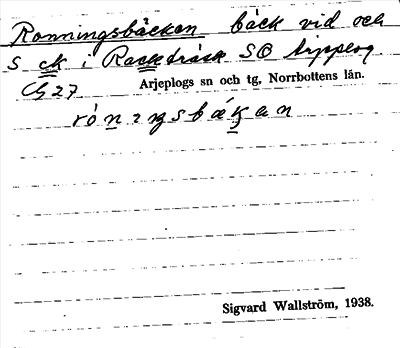 Ronningsbäcken bäck vid och
S ck i Rackträsk SO Arjeplog
Arjeplogs sn och tg, Norrbottens län.
Cg 27
róningsbäkan
Sigvard Wallström, 1938.